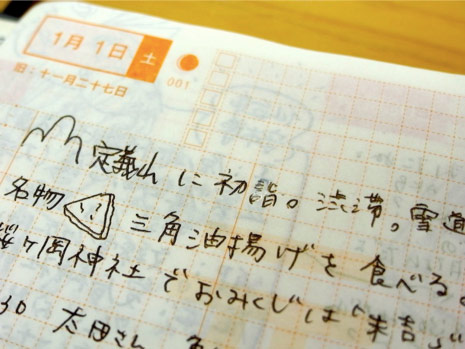 1月1日 土
旧：十一月二十七日
001
定義山に初詣。渋滞。雪道
名物 三角油揚げを食べる。
桜ヶ岡神社でおみくじは「末吉」
30 太田さん